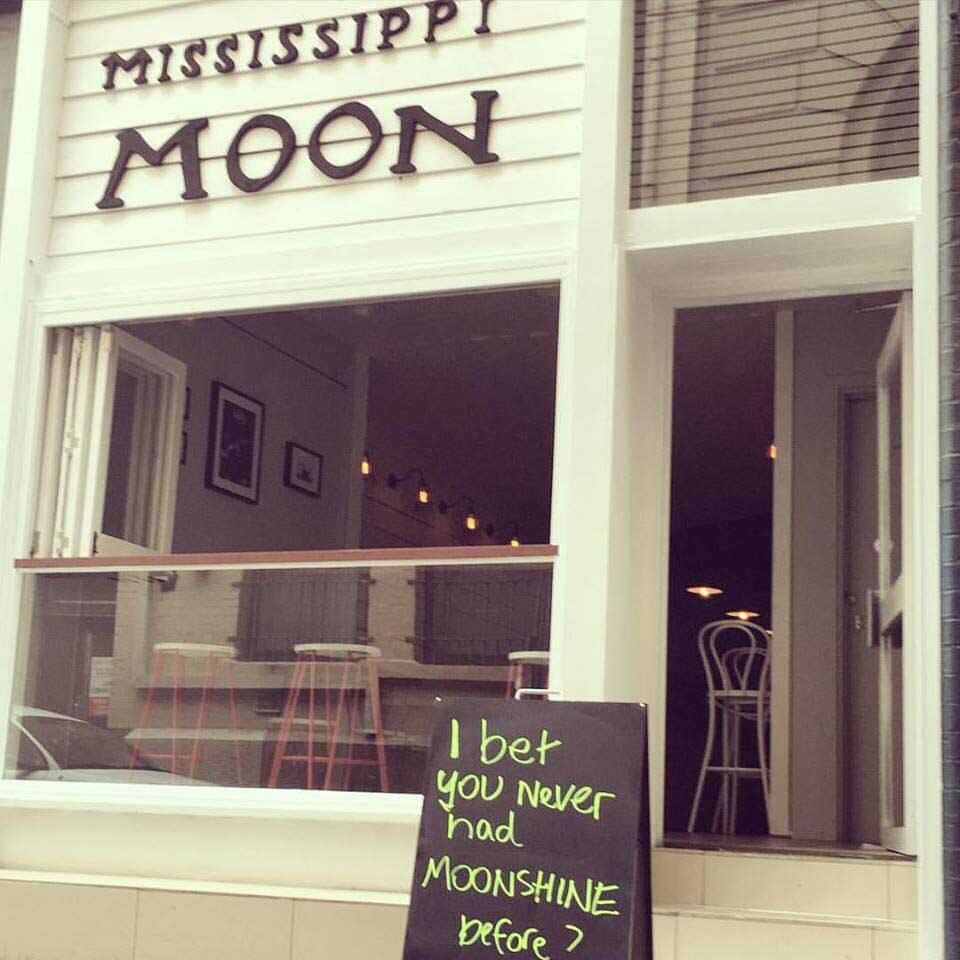 MISSISSIPPI
MOON
I bet
you Never
had
MOONSHINE
before?